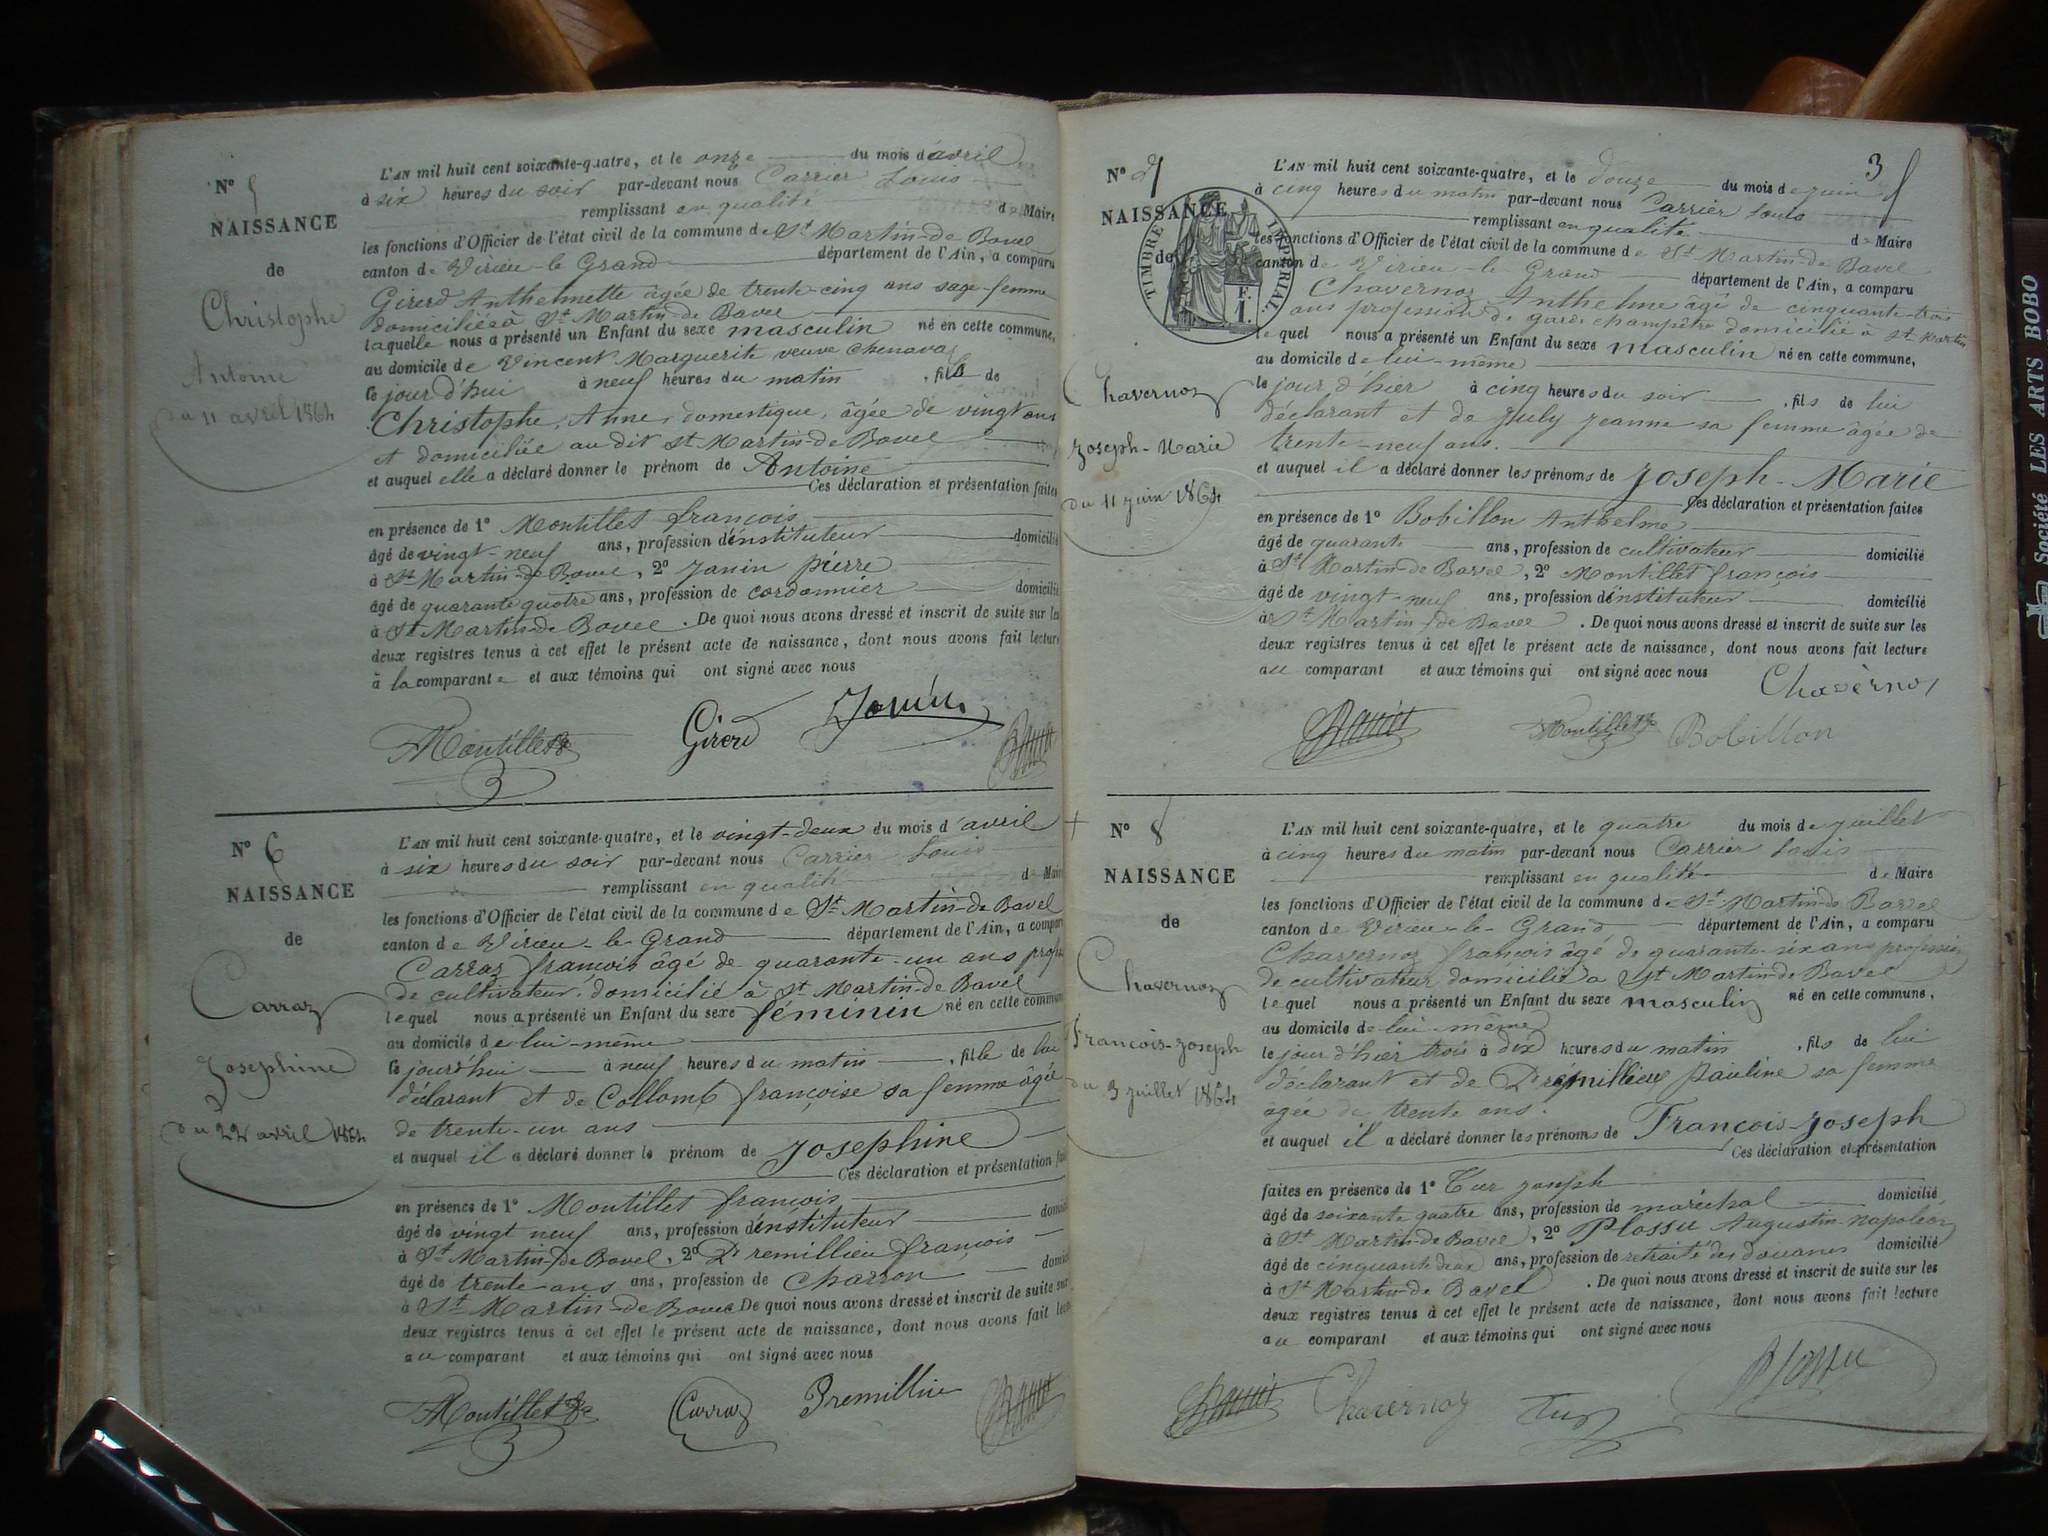 N° 5
NAISSANCE
de
Christophe
Antoine
du 11 avril 1864
L'AN mil huit cent soixante-quatre, et le onze du mois d'avril
à six heures du soir par-devant nous Carrier Louis
remplissant en qualité de Maire
les fonctions d'Officier de l'état civil de la commune de St Martin-de Bavel
canton de Virieu-le Grand département de l'Ain, a comparu
Girerd Anthelmette âgée de trente-cinq ans sage-femme
domiciliée à St Martin de Bavel
laquelle nous a présenté un Enfant du sexe masculin né en cette commune,
au domicile de Vincent Marguerite veuve Chenavaz
le jour d'hui à neuf heures du matin, fils de
Christophe, Anne, domestique, âgée de vingt ans
et domiciliée au dit St Martin-de Bavel
et auquel elle a déclaré donner le prénom de Antoine
Ces déclaration et présentation faites
en présence de 1° Montillet françois
âgé de vingt-neuf ans, profession d'instituteur domicilié
à St Martin-de Bavel, 2° Janin pierre
âgé de quarante quatre ans, profession de cordonnier domicilié
à St Martin-de Bavel. De quoi nous avons dressé et inscrit de suite sur les
deux registres tenus à cet effet le présent acte de naissance, dont nous avons fait lecture
à la comparante et aux témoins qui ont signé avec nous
Montillet Girerd Janin
N° 6
NAISSANCE
de
Carraz
Josephine
du 22 avril 1864
L'AN mil huit cent soixante-quatre, et le vingt-deux du mois d'avril
à six heures du soir par-devant nous Carrier Louis
remplissant en qualité de Maire
les fonctions d'Officier de l'état civil de la commune de St Martin-de Bavel
canton de Virieu-le-Grand département de l'Ain, a comparu
Carraz françois âgé de quarante-un ans profes
de cultivateur domicilié à St Martin-de Bavel
lequel nous a présenté un Enfant du sexe féminin né en cette commune
au domicile de lui-même
le jourd'hui à neuf heures du matin, fille de lui
déclarant et de Collomb françoise sa femme âgée
de trente-un ans
et auquel il a déclaré donner le prénom de Josephine
Ces déclaration et présentation fait
en présence de 1° Montillet françois
âgé de vingt neuf ans, profession d'instituteur domici
à St Martin-de Bavel, 2° Dremillieu françois
âgé de trente-ans ans, profession de charron domici
à St Martin-de Bavel De quoi nous avons dressé et inscrit de suite sur
deux registres tenus à cet effet le présent acte de naissance, dont nous avons fait lec
au comparant et aux témoins qui ont signé avec nous
Montillet Carraz Dremillieu
3
N° 7
NAISSANCE
de
TIMBRE IMPÉRIAL
F.
1.
Chavernoz
Joseph-Marie
du 11 juin 1864
L'AN mil huit cent soixante-quatre, et le douze du mois de juin
à cinq heures du matin par-devant nous Carrier Louis
remplissant en qualité de Maire
les fonctions d'Officier de l'état civil de la commune de St Martin-de Bavel
canton de Virieu-le-Grand département de l'Ain, a comparu
Chavernoz Anthelme âgé de cinquante-trois
ans profession de garde champêtre domicilié à St Martin
lequel nous a présenté un Enfant du sexe masculin né en cette commune,
au domicile de lui-même
le jour d'hier à cinq heures du soir, fils de lui
déclarant et de July Jeanne sa femme âgée de
trente-neuf ans.
et auquel il a déclaré donner les prénoms de Joseph-Marie
Ces déclaration et présentation faites
en présence de 1° Bobillon Anthelme
âgé de quarante ans, profession de cultivateur domicilié
à St Martin-de Bavel, 2° Montillet françois
âgé de vingt-neuf ans, profession d'instituteur domicilié
à St Martin-de Bavel. De quoi nous avons dressé et inscrit de suite sur les
deux registres tenus à cet effet le présent acte de naissance, dont nous avons fait lecture
au comparant et aux témoins qui ont signé avec nous
Chavernoz
Montillet Bobillon
N° 8
NAISSANCE
de
Chavernoz
François-Joseph
du 3 juillet 1864
L'AN mil huit cent soixante-quatre, et le quatre du mois de juillet
à cinq heures du matin par-devant nous Carrier Louis
remplissant en qualité de Maire
les fonctions d'Officier de l'état civil de la commune de St Martin-de Bavel
canton de Virieu-le-Grand département de l'Ain, a comparu
Chavernoz françois âgé de quarante-six ans profession
de cultivateur domicilié à St Martin-de Bavel
lequel nous a présenté un Enfant du sexe masculin né en cette commune,
au domicile de lui-même
le jour d'hier trois à dix heures du matin, fils de lui
déclarant et de Dremillieux pauline sa femme
âgée de trente ans.
et auquel il a déclaré donner les prénoms de François-Joseph
Ces déclaration et présentation
faites en présence de 1° Tur joseph
âgé de soixante quatre ans, profession de maréchal domicilié
à St Martin-de Bavel, 2° Plossu Augustin-Napoléon
âgé de cinquante deux ans, profession de retraité des douanes domicilié
à St Martin-de Bavel. De quoi nous avons dressé et inscrit de suite sur les
deux registres tenus à cet effet le présent acte de naissance, dont nous avons fait lecture
au comparant et aux témoins qui ont signé avec nous
Chavernoz Tur Plossu
Société LES ARTS BOBO